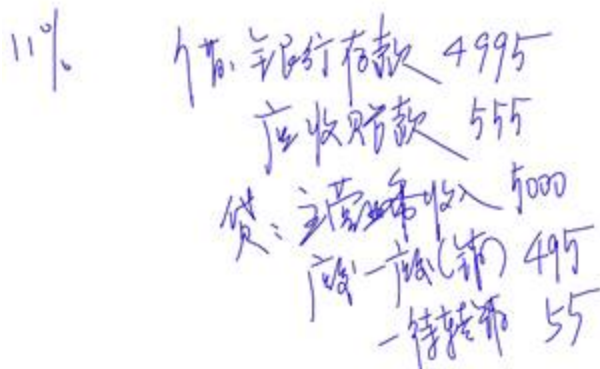 11%
借:银行存款 4995
应收账款 555
贷:主营业务收入 5000
应交-应交(销) 495
-待转销 55